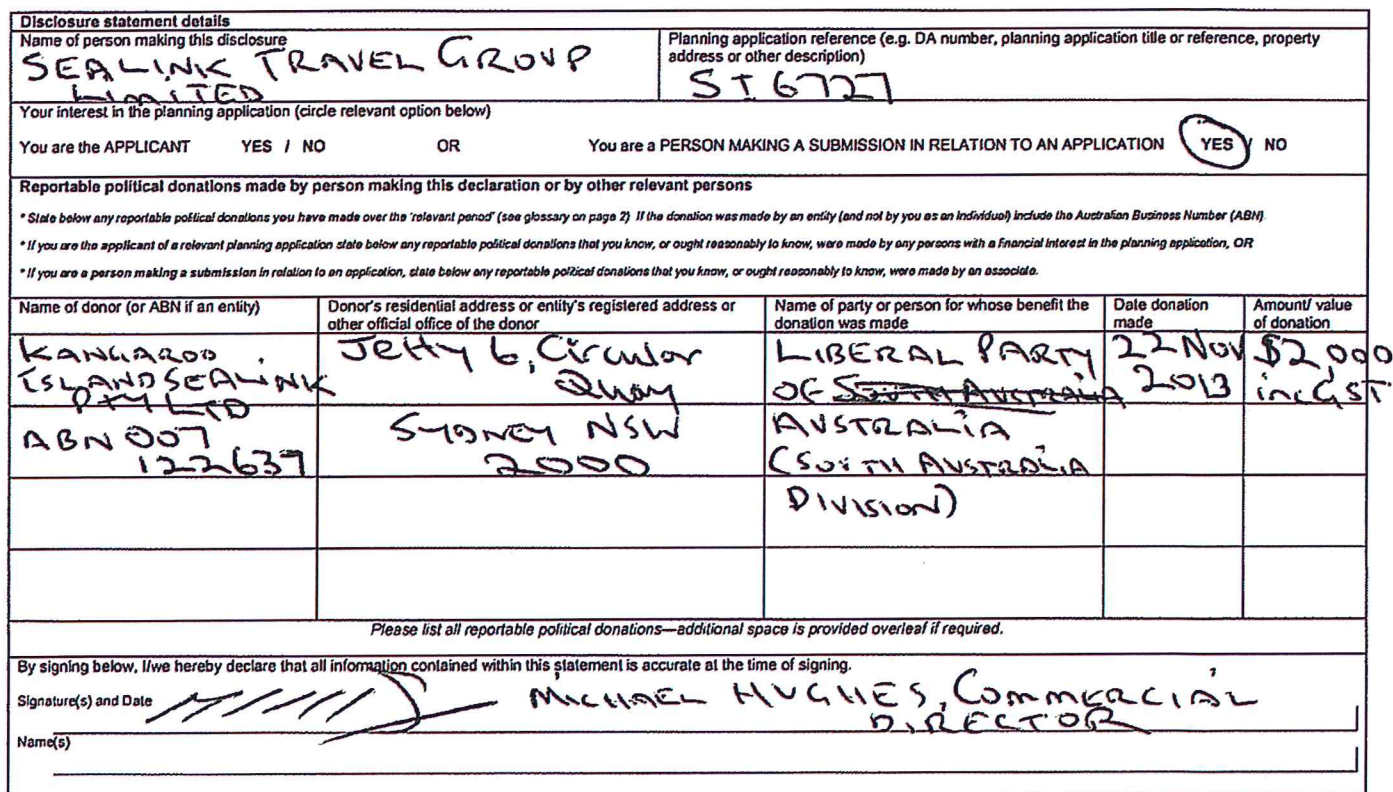 Disclosure statement details
Name of person making this disclosure
SEALINK TRAVEL GROUP
LIMITED
Planning application reference (e.g. DA number, planning application title or reference, property
address or other description)
ST 6727
Your interest in the planning application (circle relevant option below)
You are the APPLICANT YES / NO OR You are a PERSON MAKING A SUBMISSION IN RELATION TO AN APPLICATION YES / NO
Reportable political donations made by person making this declaration or by other relevant persons
* State below any reportable political donations you have made over the 'relevant period' (see glossary on page 2) If the donation was made by an entity (and not by you as an individual) include the Australian Business Number (ABN).
* If you are the applicant of a relevant planning application state below any reportable political donations that you know, or ought reasonably to know, were made by any persons with a financial interest in the planning application, OR
* If you are a person making a submission in relation to an application, state below any reportable political donations that you know, or ought reasonably to know, were made by an associate.
Name of donor (or ABN if an entity)
Donor's residential address or entity's registered address or
other official office of the donor
Name of party or person for whose benefit the
donation was made
Date donation
made
Amount/ value
of donation
KANGAROO
ISLAND SEALINK
PTY LTD
Jetty 6, Circular
Quay
LIBERAL PARTY
OF SOUTH AUSTRALIA
22 NOV
2013
$2,000
inc GST.
ABN 007
122637
SYDNEY NSW
2000
AUSTRALIA
(SOUTH AUSTRALIA
DIVISION)
Please list all reportable political donations—additional space is provided overleaf if required.
By signing below, I/we hereby declare that all information contained within this statement is accurate at the time of signing.
Signature(s) and Date
MICHAEL HUGHES, COMMERCIAL
DIRECTOR
Name(s)